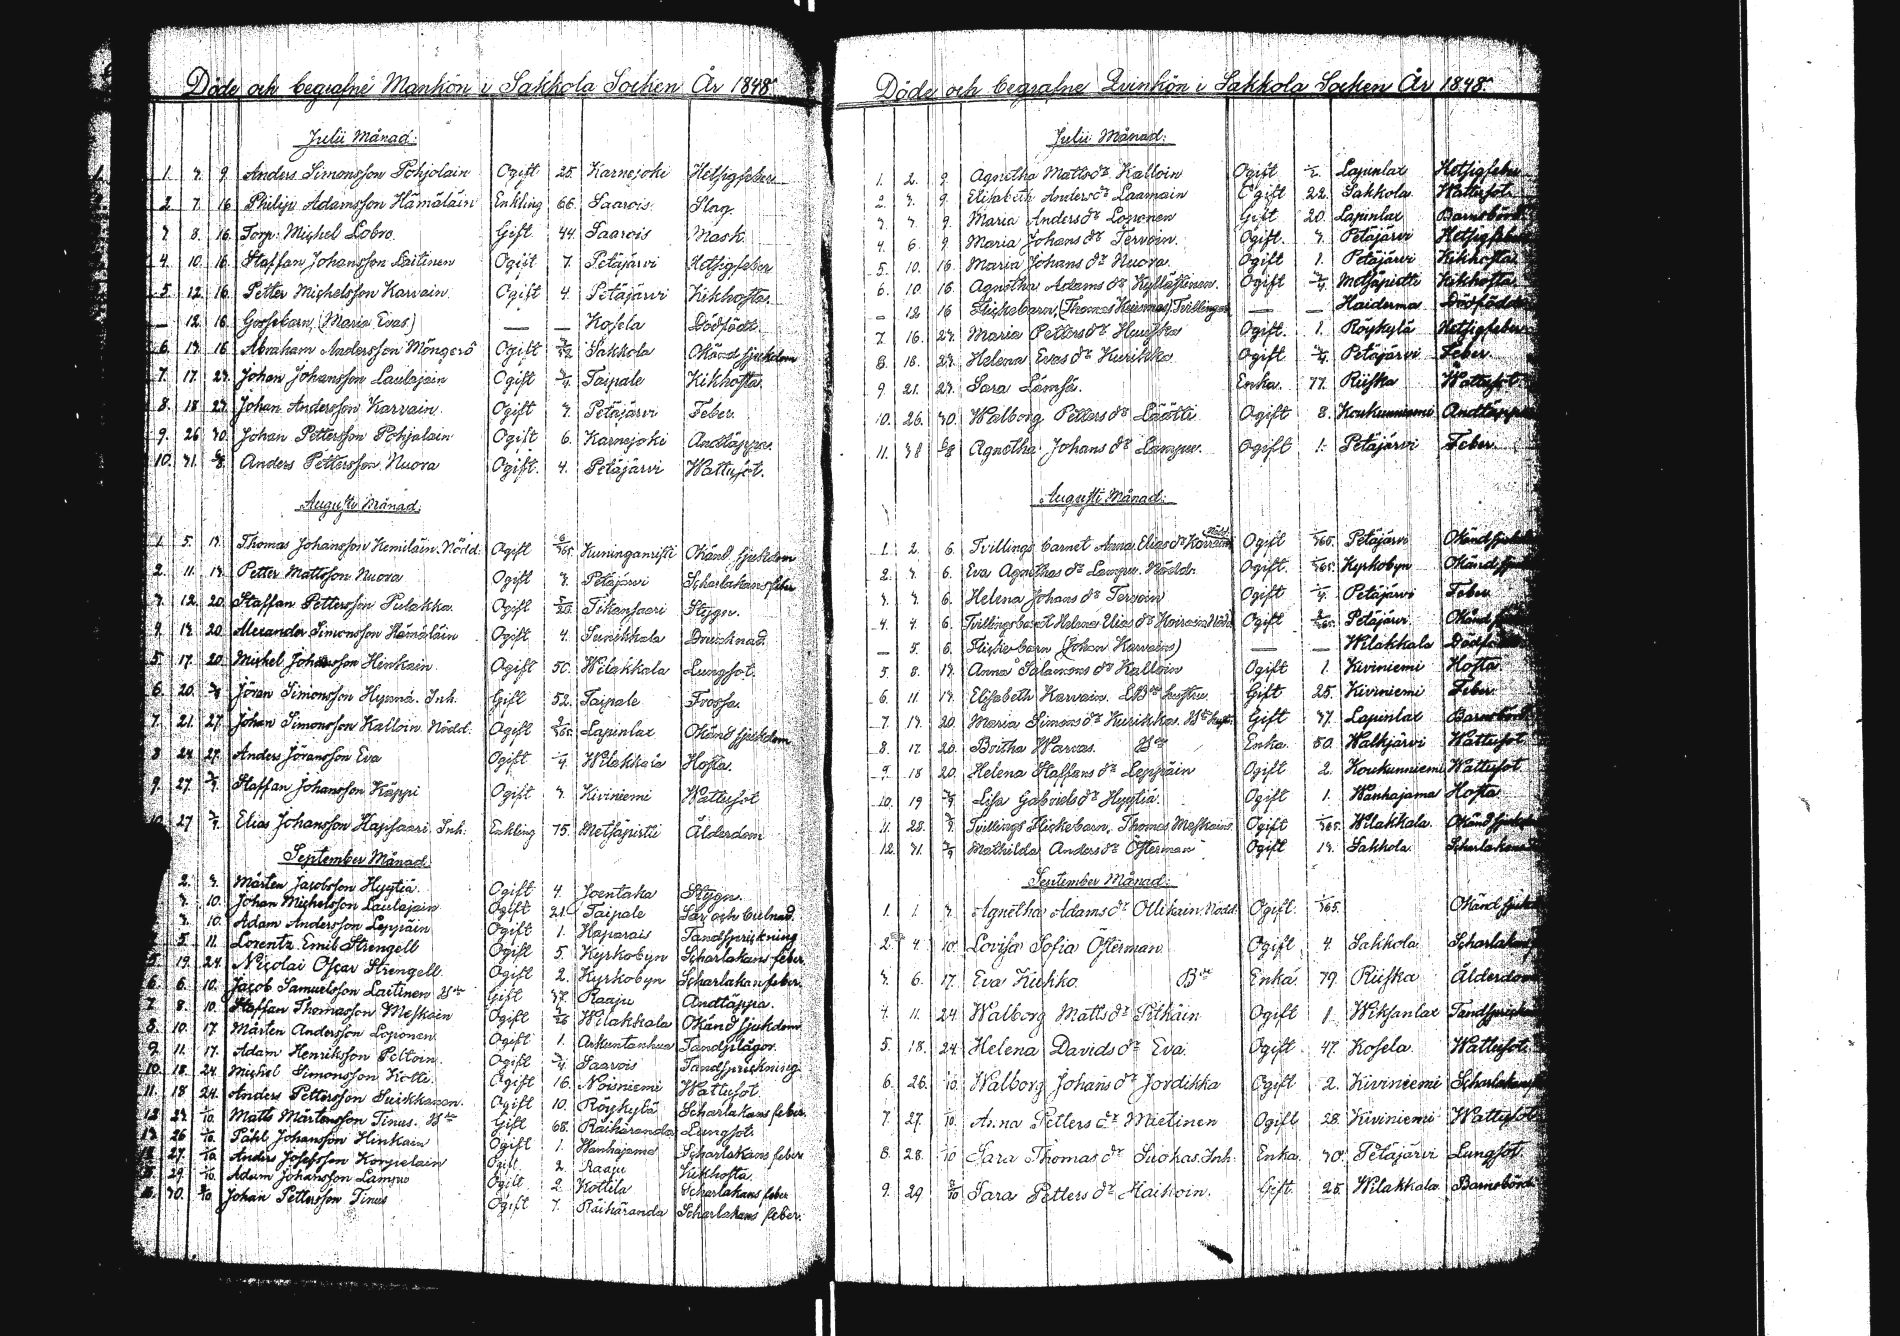 Döde och begrafne Mankön i Sakkola Socken År 1848.
Julii Månad:
1. 3. 9. Anders Simonsson Pohjolain Ogift 25. Karnajoki Hetsigfeber
2. 7. 16. Philip Adamsson Hämäläin Enkling 66. Saarois Slag.
3. 8. 16. Torp. Michel Lobro. Gift 44. Saarois Mask.
4. 10. 16. Staffan Johansson Laitinen Ogift 7. Petäjärvi Hetsigfeber
5. 12. 16. Petter Michelsson Karvain. Ogift 4. Petäjärvi Kikhosta.
— 12. 16. Gossebarn, (Maria Evas) — — Kosela Dödfödt.
6. 13. 16. Abraham Andersson Ogift Sakkola Okänd sjukdom
7. 17. 23. Johan Johansson Laulajain Ogift Taipale Kikhosta.
8. 18. 23. Johan Andersson Karvain. Ogift 3. Petäjärvi Feber.
9. 26. 30. Johan Pettersson Pohjolain Ogift 6. Karnajoki Andtäppa.
10. 31. Anders Pettersson Nuora Ogift. 4. Petäjärvi Wattusot.
Augusti Månad:
1. 5. 13. Thomas Johansson Kemiläin. Nödd. Ogift Kuninganristi Okänd sjukdom
2. 11. 13. Petter Mattsson Nuora Ogift 3. Petäjärvi Scharlakansfeber
3. 12. 20. Staffan Pettersson Pulakka. Ogift Tikansaari Stygn.
4. 13. 20. Alexander Simonsson Hämäläin Ogift 4. Drucknad.
5. 17. 20. Michel Johansson Hinkain. Ogift 50. Wilakkala Lungsot.
6. 20. Jöran Simonsson Hyvvnä. Inh. Gift 52. Taipale Frossa.
7. 21. 27. Johan Simonsson Kalloin. Nödd. Ogift Lapinlax Okänd sjukdom
8. 24. 27. Anders Jöransson Eva Ogift Wilakkala Hosta.
9. 27. Staffan Johansson Käppi Ogift 3. Kiviniemi Wattusot
27. Elias Johansson Hapsaari. Inh. Enkling 75. Metsäpirtti Ålderdom
September Månad
2. 3. Mårten Jacobsson Hyytiä. Ogift 4. Joentaka Stygn.
3. 10. Johan Michelsson Laulajain Ogift 21. Taipale Sår och bulnad.
3. 10. Adam Andersson Leppäin Ogift 1. Haparais Tandsprickning
5. 11. Lorentz Emil Strengell Ogift 5. Kyrkobyn Scharlakans feber.
5. 19. 24. Nicolai Oscar Strengell. Ogift 2. Kyrkobyn Scharlakan feber.
6. 6. 10. Jacob Samuelsson Laitinen Gift 37. Raaju Andtäppa.
7. 8. 10. Staffan Thomasson Meskain Ogift Wilakkala Okänd sjukdom
8. 10. 17. Mårten Andersson Loponen Ogift 1. Arkuntanhua Tandplågor.
9. 11. 17. Adam Henriksson Peltoin. Ogift Saarois Tandsprickning
10. 18. 24. Michel Simonsson Kotti. Ogift 16. Noisniemi Wattusot.
11. 18. 24. Anders Pettersson Suikkanen. Ogift 10. Röykylä Scharlakans feber.
12. 23. Matts Mårtensson Tinus. Gift 68. Raikäranda Lungsot.
13. 26. Påhl Johansson Hinkain Ogift 1. Wanhajama Scharlakans feber
27. Anders Josefsson Korpelain Ogift 2. Raaju Kikhosta.
29. Adam Johansson Lampu Ogift 2. Kottila Scharlakans feber
30. Johan Pettersson Tinus Ogift 7. Raikäranda Scharlakans feber.
Döde och begrafne Qvinkön i Sakkola Socken År 1848.
Julii Månad:
1. 2. 9. Agnetha Matts dr Kalloin Ogift Lapinlax Hetsigfeber
2. 3. 9. Elisabeth Anders dr Laamain Ogift 22. Sakkola Wattusot.
3. 3. 9. Maria Anders dr Loponen Gift 20. Lapinlax
4. 6. 9. Maria Johans dr Tervoin. Ogift. 3. Petäjärvi
5. 10. 16. Maria Johans dr Nuora. Ogift 1. Petäjärvi Kikhosta
6. 10. 16. Agnetha Adams dr Kyllästinen. Ogift Metsäpirtti Kikhosta.
— 12. 16. Flickebarn, (Thomas Tvillingar — — Haiderma
7. 16. 23. Maria Petters dr Huuska Ogift. 1. Röykylä Hetsigfeber
8. 18. 23. Helena Evas dr Kurikka Ogift Petäjärvi Feber.
9. 21. 23. Sara Lämsä. Enka. 77. Riiska Wattusot.
10. 26. 30. Walborg Petters dr Läätti Ogift 8. Koukunniemi Andtäppa
11. Agnetha Johans dr Lampu. Ogift 1. Petäjärvi Feber.
Augusti Månad:
1. 2. 6. Tvillings barnet Anna Elias dr Nödd. Ogift Petäjärvi
2. 3. 6. Eva Agnethas dr Lampu. Nödd. Ogift. Kyrkobyn
3. 3. 6. Helena Johans dr Tervoin Ogift Petäjärvi Feber
4. 4. 6. Tvillingsbarnet Helena Elias dr Nödd. Ogift Petäjärvi
— 5. 6. Flickebarn (Johan Karvains) — — Wilakkala
5. 8. 13. Anna Salamons dr Kalloin Ogift 1. Kiviniemi Hosta
6. 11. 13. Elisabeth Karvain. hustru. Gift 25. Kiviniemi Feber.
7. 13. 20. Maria Simons dr Kurikka. Gift 37. Lapinlax
8. 17. 20. Britha Warvas. Enka. 50. Walkjärvi Wattusot
9. 18. 20. Helena Staffans dr Leppäin Ogift 2. Koukunniemi Wattusot
10. 19. Lisa Gabriels dr Hyytiä. Ogift 1. Wanhajama Hosta
11. 28. Tvillings Flickebarn, Thomas Meskains. Ogift Wilakkala.
12. 31. Mathilda Anders dr Österman Ogift 13. Sakkola
September Månad:
1. 1. 3. Agnetha Adams dr Ollikain. Nödd. Ogift.
2. 4. 10. Lovisa Sofia Österman Ogift 4. Sakkola
3. 6. 17. Eva Kukko. Enka. 79. Riiska Ålderdom
4. 11. 24. Walborg Matts dr Pitkäin Ogift 1. Wiksanlax
5. 18. 24. Helena Davids dr Eva. Ogift 47. Kosela Wattusot.
6. 26. Walborg Johans dr Jordikka Ogift 2. Kiviniemi
7. 27. Anna Petters dr Mietinen Ogift 28. Kiviniemi Wattusot
8. 28. Sara Thomas dr Suokas. Inh. Enka. 70. Petäjärvi Lungsot.
9. 29. Sara Petters dr Haikoin. Gift 25. Wilakkala.